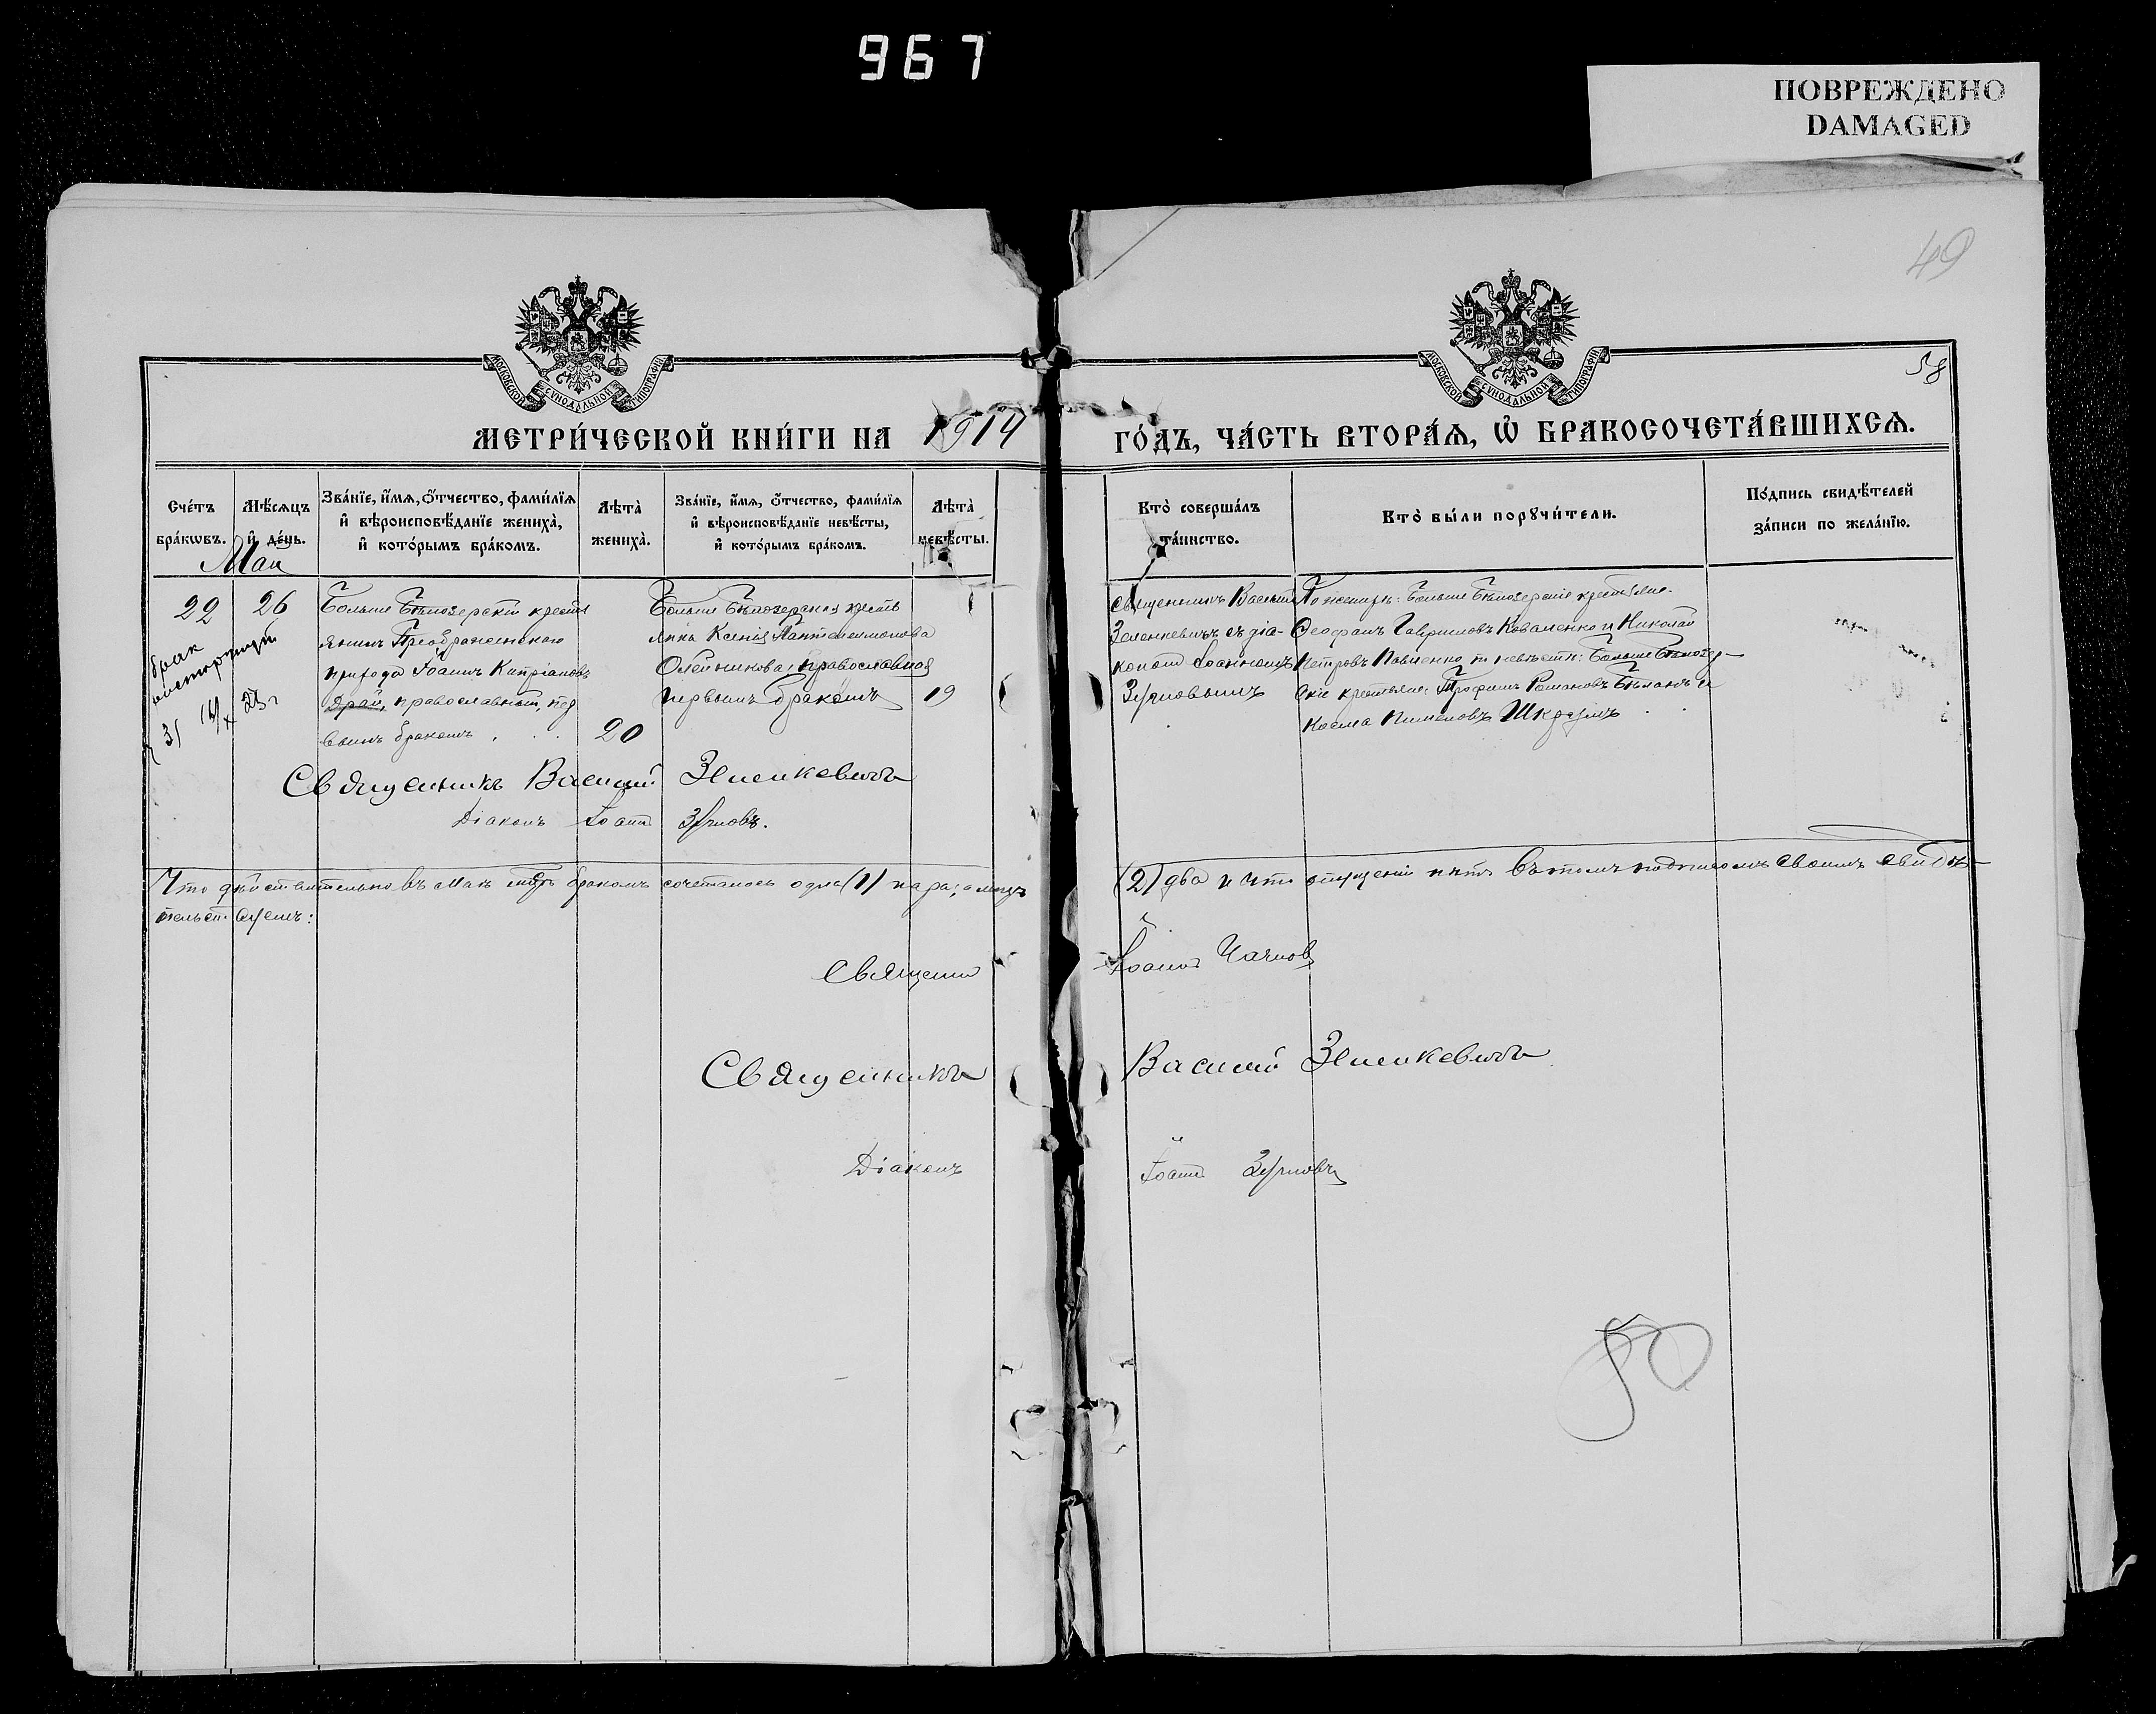 967
ПОВРЕЖДЕНО
DAMAGED
49
58
МОСКОВСКОЙ СѴНОДАЛЬНОЙ ТИПОГРАФІИ
МОСКОВСКОЙ СѴНОДАЛЬНОЙ ТИПОГРАФІИ
МЕТРИ́ЧЕСКОЙ КНИ́ГИ НА 1914 ГО́ДЪ, ЧА́СТЬ ВТОРА́Ѧ, Ѡ҆ БРАКОСОЧЕТА́ВШИХСѦ.
Сче́тъ
бра́кѡвъ.
Мѣ́сяцъ
и҆ де́нь.
Зва́нїе, и҆́мѧ, ѻ҆́тчество, фами́лїѧ
и҆ вѣроисповѣ́данїе жениха̀,
и҆ кото́рымъ бра́комъ.
Лѣта̀
жениха̀.
Зва́нїе, и҆́мѧ, ѻ҆́тчество, фами́лїѧ
и҆ вѣроисповѣ́данїе невѣ́сты,
и҆ кото́рымъ бра́комъ.
Лѣта̀
невѣ́сты.
Кто̀ соверша́лъ
та́инство.
Кто̀ бы́ли порꙋчи́тели.
По́дпись свидѣ́телей
за́писи по жела́нїю.
Май
22
26
брак
расторгнут
31 23 г
Больше Бѣлозерскій кресть
янинъ Преображенскаго
прихода Іоаннъ Кипріановъ
православный, пер
вымъ бракомъ
20
Больше Бѣлозерская кресть
янка Ксенія Пантелеимонова
Олейникова, православная
первымъ бракомъ
19
Священникъ Василій
Зеленкевичъ съ діа-
кономъ Іоанномъ
Зерновымъ
По женихѣ: Больше Бѣлозерскіе крестьяне
Ѳеофанъ Гавриловъ Коваленко и Николай
Петровъ Павленко, по невѣстѣ: Больше Бѣлозер-
скіе крестьяне: Трофимъ Романовъ Бѣланъ и
Косма Пименовъ
Священникъ Василій Зеленкевичъ
Діаконъ Іоаннъ Зерновъ.
Что дѣйствительно въ Маѣ мѣсяцѣ бракомъ сочеталось одна (1) пара, а лицъ (2) два и что опущеній нѣтъ въ томъ подписомъ своимъ свидѣ-
тельствуемъ:
Священ Іоаннъ
Священникъ Василій Зеленкевичъ
Діаконъ Іоаннъ Зерновъ
50